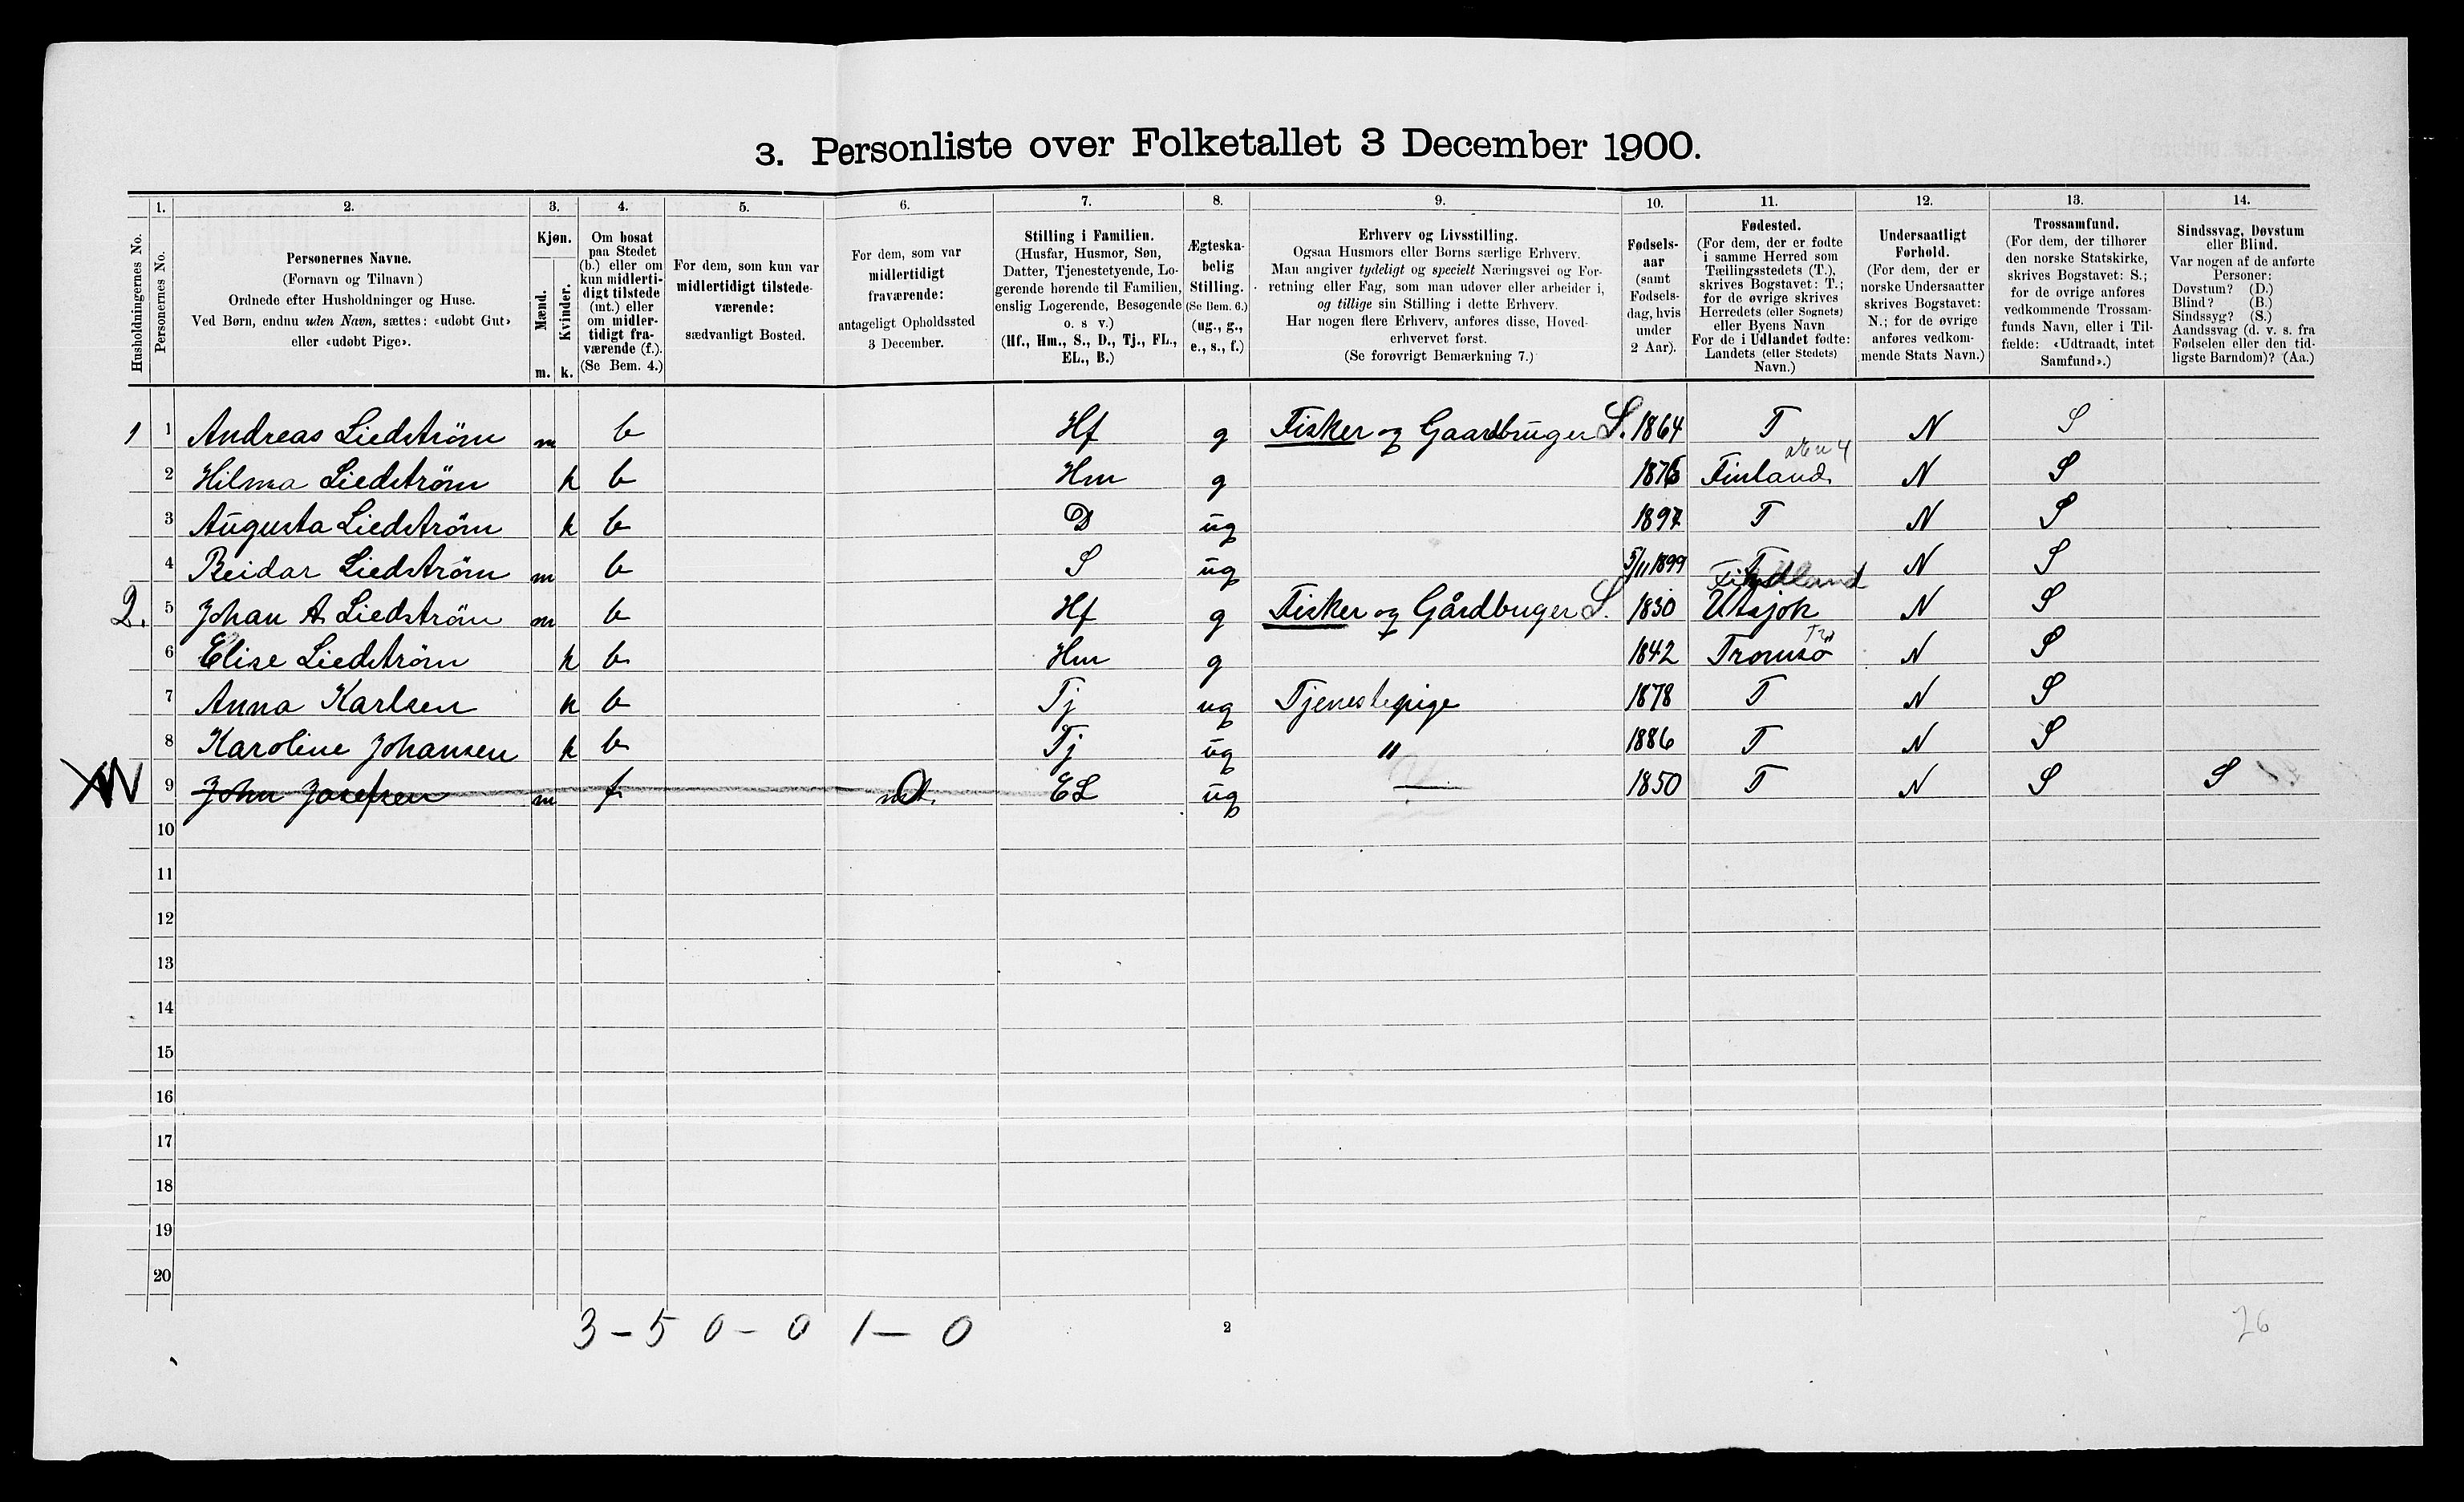 3. Personliste over Folketallet 3 December 1900.
1. 2. 3. 4. 5. 6. 7. 8. 9. 10. 11. 12. 13. 14.
Husholdningernes No.
Personernes No.
Personernes Navne.
(Fornavn og Tilnavn)
Ordnede efter Husholdninger og Huse.
Ved Børn, endnu uden Navn, sættes: «udøbt Gut»
eller «udøbt Pige».
Kjøn.
Mænd.
Kvinder.
m. k.
Om bosat
paa Stedet
(b.) eller om
kun midlerti-
digt tilstede
(mt.) eller
om midler-
tidigt fra-
værende (f.).
(Se Bem. 4.)
For dem, som kun var
midlertidigt tilstede-
værende:
sædvanligt Bosted.
For dem, som var
midlertidigt
fraværende:
antageligt Opholdssted
3 December.
Stilling i Familien.
(Husfar, Husmor, Søn,
Datter, Tjenestetyende, Lo-
gerende hørende til Familien,
enslig Logerende, Besøgende
o. s v.)
(Hf., Hm., S., D., Tj., FL.,
EL., B.)
Ægteska-
belig
Stilling.
(Se Bem. 6.)
(ug., g.,
e., s., f.)
Erhverv og Livsstilling.
Ogsaa Husmors eller Børns særlige Erhverv.
Man angiver tydeligt og specielt Næringsvei og For-
retning eller Fag, som man udøver eller arbeider i,
og tillige sin Stilling i dette Erhverv.
Har nogen flere Erhverv, anføres disse, Hoved-
erhvervet først.
(Se forøvrigt Bemærkning 7.)
Fødsels-
aar
(samt
Fødsels-
dag, hvis
under
2 Aar).
Fødested.
(For dem, der er fødte
i samme Herred som
Tællingsstedets (T.),
skrives Bogstavet: T.;
for de øvrige skrives
Herredets (eller Sognets)
eller Byens Navn
For de i Udlandet fødte:
Landets (eller Stedets)
Navn.)
Undersaatligt
Forhold.
(For dem, der er
norske Undersaatter
skrives Bogstavet:
N.; for de øvrige
anføres vedkom-
mende Stats Navn.)
Trossamfund.
(For dem, der tilhører
den norske Statskirke,
skrives Bogstavet: S.;
for de øvrige anføres
vedkommende Trossam-
funds Navn, eller i Til-
fælde: «Udtraadt, intet
Samfund».)
Sindssvag, Døvstum
eller Blind.
Var nogen af de anførte
Personer:
Døvstum? (D.)
Blind? (B.)
Sindssyg? (S.)
Aandssvag (d. v. s. fra
Fødselen eller den tid-
ligste Barndom)? (Aa.)
1 1 Andreas Liedström m b Hf g Fisker og Gaardbruger S. 1864 T N S
2 Hilma Liedström k b Hm g 1876 Finland N S
3 Augusta Liedström k b D ug 1897 T N S
4 Reidar Liedström m b S ug 5/11 1899 T N S
Finland
2. 5 Johan A Liedström m b Hf g Fisker og Gårdbruger S. 1830 Utsjok N S
6 Elise Liedström k b Hm g 1842 Tromsö N S
7 Anna Karlsen k b Tj ug Tjenestepige 1878 T N S
8 Karoline Johansen k b Tj ug " 1886 T N S
9 John Josefsen m f EL ug — 1850 T N S S
10
11
12
13
14
15
16
17
18
19
20
3 – 5 0 – 0 1 – 0
2
26